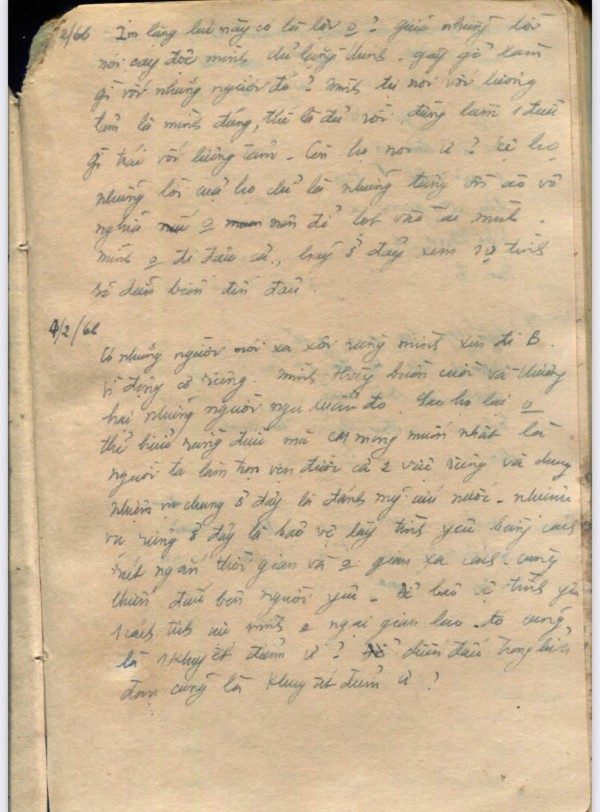 2/66 Im lặng lúc này có là lời o? Giữa những lời
nói cay độc mình cứ lẳng thinh. gây gổ làm
gì với những người đó? Mình tự nói với lương
tâm là mình đúng, thế là đủ rồi. đừng làm 1 điều
gì trái với lương tâm. Còn họ nói ư? kệ họ
những lời của họ chỉ là những tiếng ồn ào vô
nghĩa o nên để lọt vào tai mình.
mình o đi đâu cả, hãy ở đây xem sự tình
sẽ diễn biến đến đâu.
4/2/66
Có những người nói xa xôi rằng mình xin đi B.
vì động cơ riêng. Mình thấy buồn cười và thương
hại những người ngu xuẩn đó. Sao họ lại o
thể hiểu rằng điều mà CM mong muốn nhất là
người ta làm trọn vẹn được cả 2 việc riêng và chung
nhiệm vụ chung ở đây là đánh mỹ cứu nước. nhiệm
vụ riêng ở đây là bảo vệ lấy tình yêu bằng cách
rút ngắn thời gian và o gian xa cách. cùng
chiến đấu bên người yêu. để bảo vệ tình yêu
1 cách tích cực mình o ngại gian lao. đó cũng
là 1 khuyết điểm ư? chiến đấu trong
cũng là khuyết điểm ư?